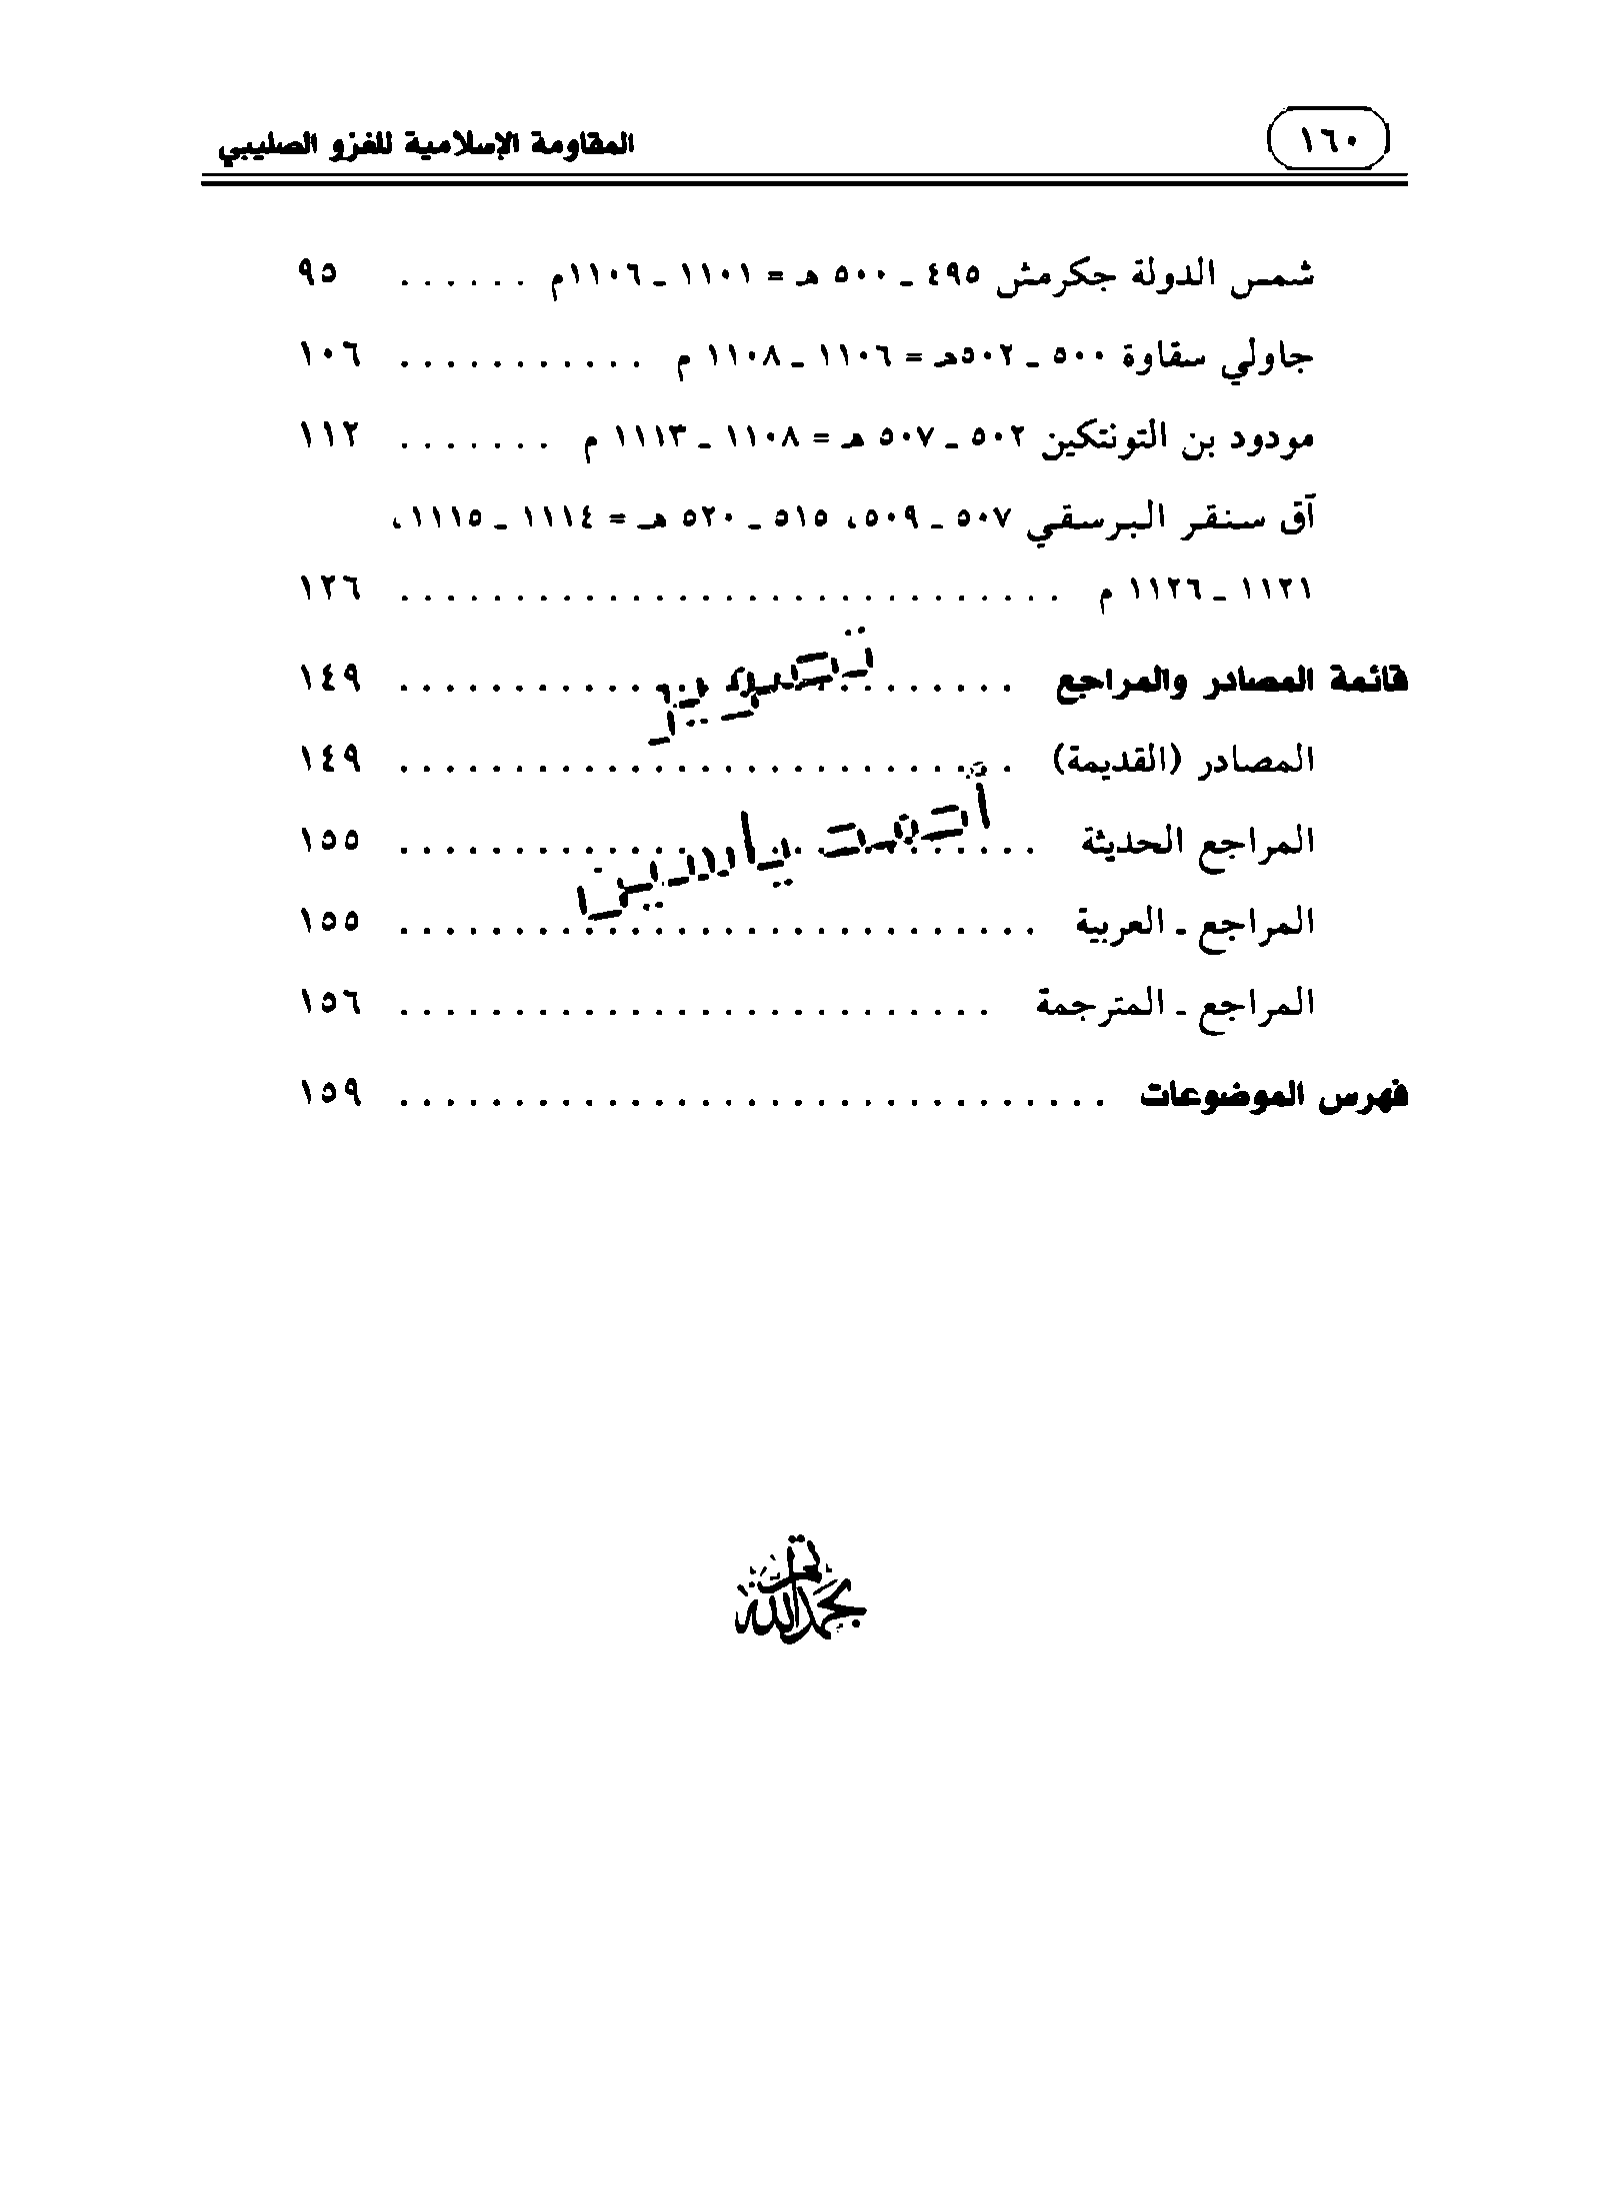 ١٦٠ المقاومة الإسلامية للغزو الصليبي
شمس الدولة جكرمش ٤٩٥ ـ ٥٠٠ هـ = ١١٠١ ـ ١١٠٦م ...... ٩٥
جاولي سقاوة ٥٠٠ ـ ٥٠٢هـ = ١١٠٦ ـ ١١٠٨ م ........... ١٠٦
مودود بن التونتكين ٥٠٢ ـ ٥٠٧ هـ = ١١٠٨ ـ ١١١٣ م ....... ١١٢
آق سنقر البرسقي ٥٠٧ ـ ٥٠٩، ٥١٥ ـ ٥٢٠ هـ = ١١١٤ ـ ١١١٥،
١١٢١ ـ ١١٢٦ م ............................. ١٢٦
قائمة المصادر والمراجع ........................... ١٤٩
تصوير
المصادر (القديمة) ........................... ١٤٩
أحمد ياسين
المراجع الحديثة ............................ ١٥٥
المراجع ـ العربية ............................ ١٥٥
المراجع ـ المترجمة .......................... ١٥٦
فهرس الموضوعات ............................... ١٥٩
تم بحمد الله